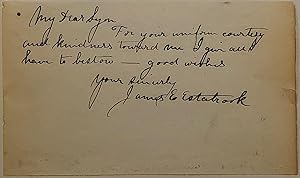 My Dear Lyon
For your uniform courtesy
and kindness toward me I give all I
have to bestow — good wishes
Yours sincerely
James E Estabrook